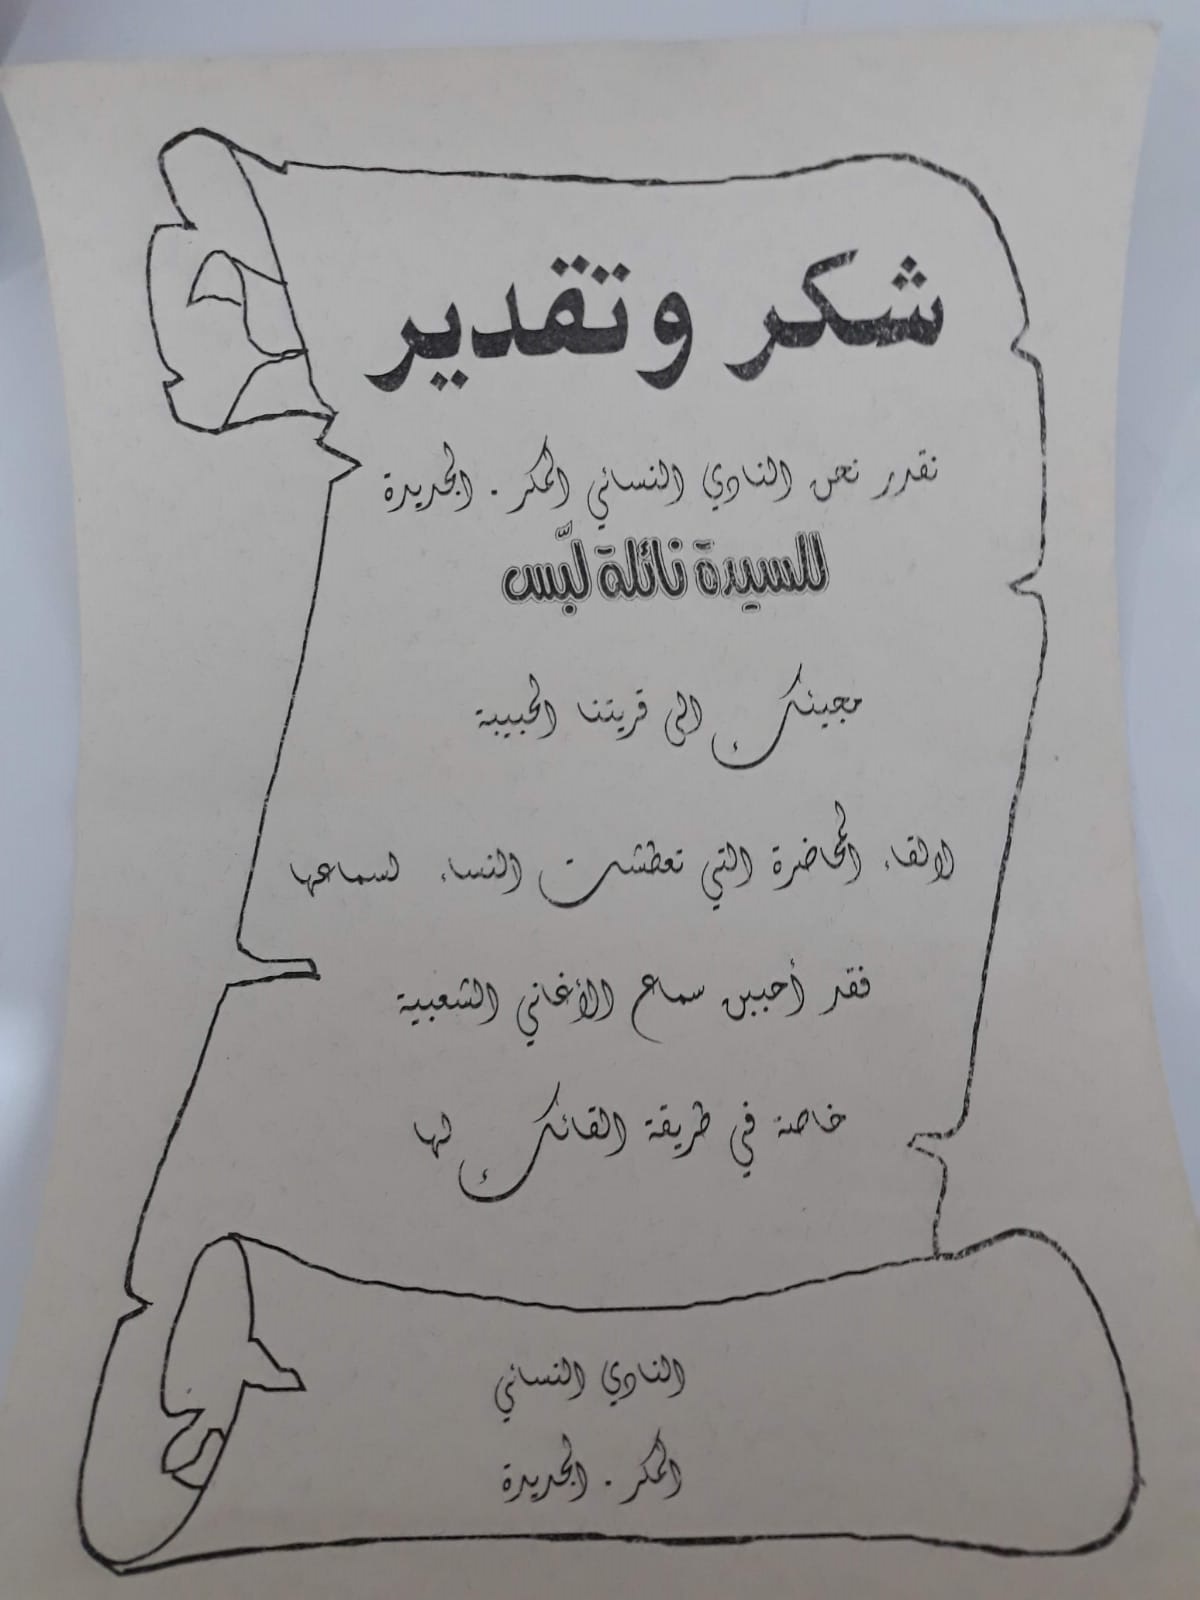 شكر وتقدير
نقدر نحن النادي النسائي المكر - الجديدة
للسيدة نائلة لبّس
مجيئك الى قريتنا الحبيبة
لالقاء المحاضرة التي تعطشت النساء لسماعها
فقد أحببن سماع الأغاني الشعبية
خاصة في طريقة القائك لها
النادي النسائي
المكر - الجديدة